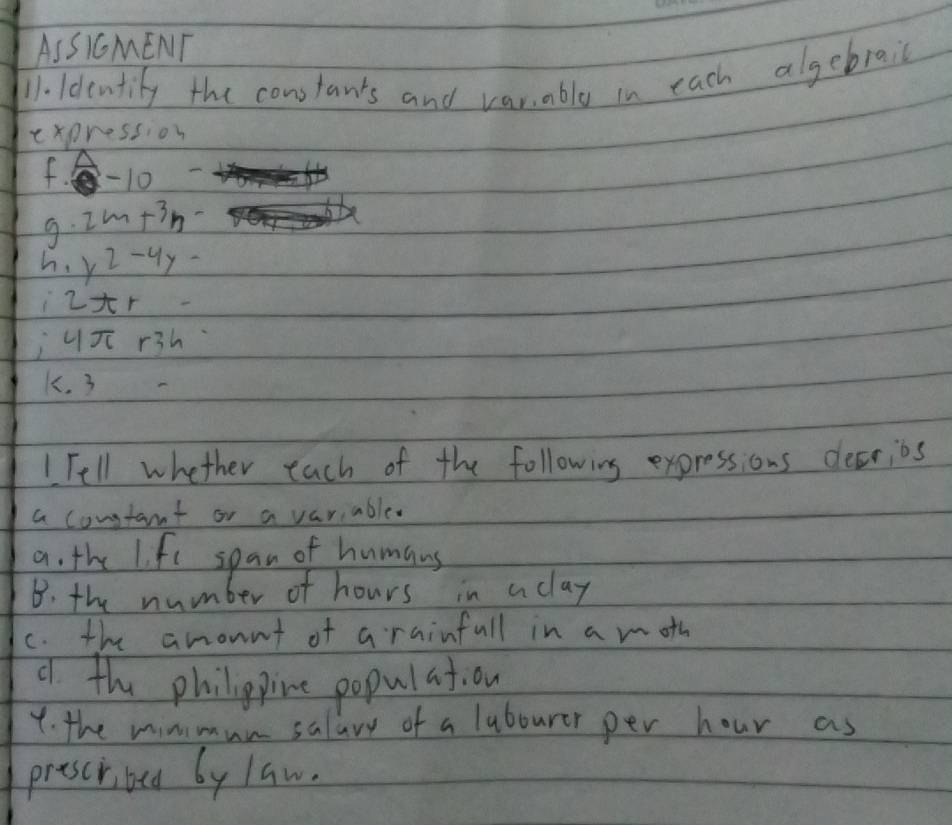 ASSIGMENT
11. Identify the constants and variables in each algebraic
expression
f. -10 -
g. 2m+3n -
h. y2-4y -
i 2πr -
j 4π r3h
k. 3 -
1 Tell whether each of the following expressions describs
a constant or a variable.
a. the life span of humans
B. the number of hours in a day
c. the amount of a rainfall in a moth
d. the philippine population
the minimum salary of a labourer per hour as
prescribed by law.